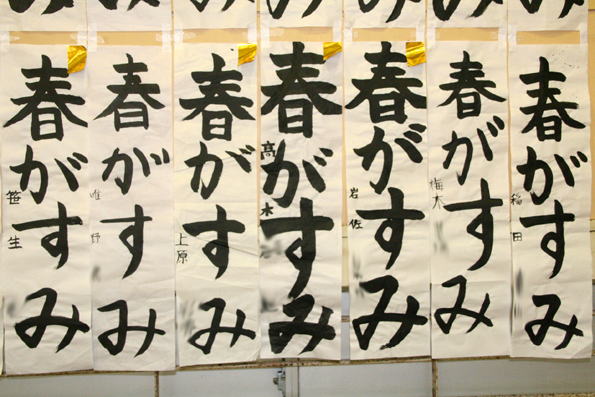 春がすみ
笹生
春がすみ
春がすみ
上原
春がすみ
高木
春がすみ
岩佐
春がすみ
梅木
春がすみ
稲田